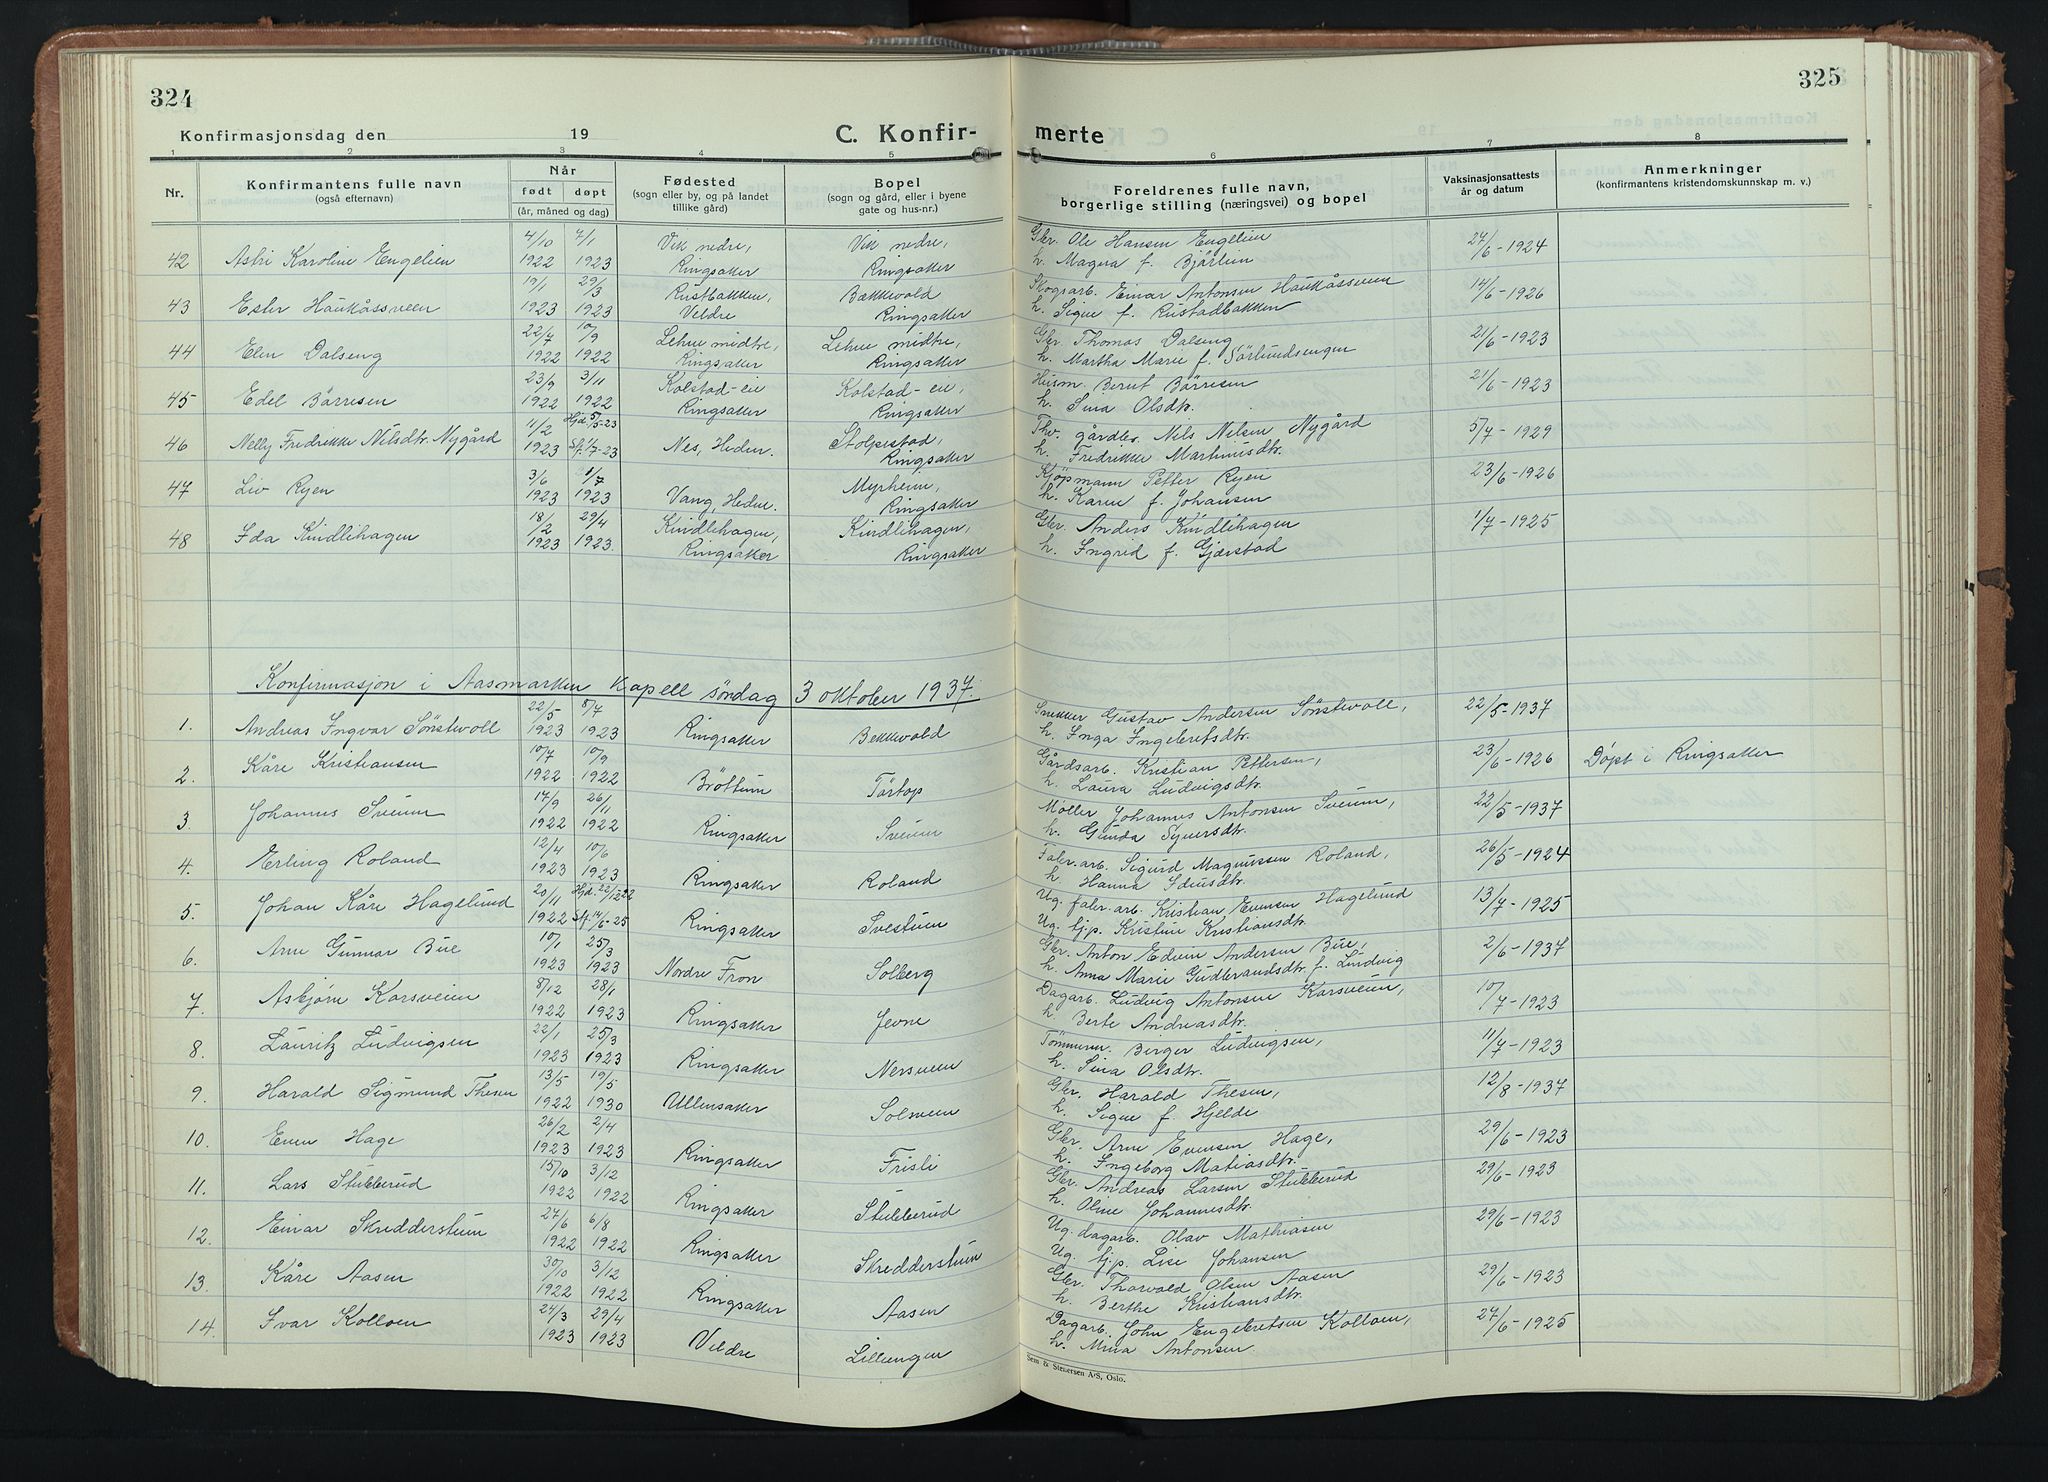 324
325
Konfirmasjonsdag den 19
C. Konfir-
merte
1 2 3 4 5 6 7 8
Nr.
Konfirmantens fulle navn
(også efternavn)
Når
født døpt
(år, måned og dag)
Fødested
(sogn eller by, og på landet
tillike gård)
Bopel
(sogn og gård, eller i byene
gate og hus-nr.)
Foreldrenes fulle navn,
borgerlige stilling (næringsvei) og bopel
Vaksinasjonsattests
år og datum
Anmerkninger
(konfirmantens kristendomskunnskap m. v.)
4/10 7/1 Vik nedre, Vik nedre, Gbr. Ole Hansen Engelien 27/6-1924
42 Astri Karoline Engelien 1922 1923 Ringsaker Ringsaker h. Magna f. Bjørlien
19/1 29/3 Rustbakken, Bækkevold Skogsarb. Einar Antonsen Haukåssveen 14/6-1926
43 Ester Haukåssveen 1923 1923 Veldre Ringsaker h. Signe f. Rustadbakken
22/7 10/9 Lehne midtre, Lehne midtre, Gbr. Thomas Dalseng 21/6-1923
44 Elin Dalseng 1922 1922 Ringsaker Ringsaker h. Martha Marie f. Sørlundsengen
23/9 3/11 Kolstad-eie Kolstad-eie, Husm. Bernt Børresen 21/6-1923
45 Edel Børresen 1922 1922 Ringsaker Ringsaker h. Sina Olsdtr.
11/2 Hjd. 5/5-23 Stolpestad, Fhv. gårdbr. Nils Nilsen Nygård 5/7-1929
46 Nelly Fredrikke Nilsdtr. Nygård 1923 Sf. 1/7-23 Nes, Hedm. Ringsaker h. Fredrikke Martinusdtr.
3/6 1/7 Myrheim, Kjøpmann Petter Ryen 23/6-1926
47 Liv Ryen 1923 1923 Vang, Hedm. Ringsaker h. Karen f. Johansen
18/2 29/4 Kindlihagen, Kindlihagen, Gbr. Anders Kindlihagen 1/7-1925
48 Ida Kindlihagen 1923 1923. Ringsaker Ringsaker h. Ingrid f. Gjærstad
Konfirmasjon i Aasmarken Kapell söndag 3 oktober 1937.
22/5 8/7 Snekker Gustav Andersen Sønstevoll, 22/5-1937
1. Andreas Ingvar Sønstevoll 1923 1923 Ringsaker Bekkevold h. Inga Ingebretsdtr.
10/7 10/9 Gårdsarb. Kristian Pettersen, 23/6-1926 Døpt i Ringsaker
2. Kåre Kristiansen 1922 1922 Brøttum Tørtop h. Laura Ludvigsdtr.
17/9 26/11 Møller Johannes Antonsen Sveum, 22/5-1937
3. Johannes Sveum 1922 1922 Ringsaker Sveum h. Gunda Syversdtr.
12/4 10/6 Fabr.arb. Sigurd Magnussen Roland, 26/5-1924
4. Erling Roland 1923 1923 Ringsaker Roland h. Hanna
20/11 Hjd. 22/12 22 Ug. fabr.arb. Kristian Evensen Hagelund 13/7-1925
5. Johan Kåre Hagelund 1922 Sf. 14/6-25 Ringsaker Svestuen Ug. tj.p. Kristine Kristiansdtr.
10/1 25/3 Gbr. Anton Edvin Andersen Bue, 2/6-1937
6. Arne Gunnar Bue 1923 1923 Nordre Fron Solberg h. Anna Marie Gudbrandsdtr. f. Lundvig
8/12 28/1 Dagarb. Ludvig Antonsen Karsveen, 10/7-1923
7. Asbjørn Karsveen 1922 1923 Ringsaker Jevne h. Berte Andreasdtr.
22/1 25/3 Tømmerm. Birger Ludvigsen, 11/7-1923
8. Lauritz Ludvigsen 1923 1923 Ringsaker Nersveen h. Sina Olsdtr.
13/5 19/5 Gbr. Harald Thesen, 12/8-1937
9. Harald Sigmund Thesen 1922 1930 Ullensaker Solveen h. Signe f. Hjelde
26/2 2/4 Gbr. Arne Evensen Hage, 29/6-1923
10. Even Hage 1923 1923 Ringsaker Frisli h. Ingeborg Matiasdtr.
15/10 3/12 Gbr. Andreas Larsen Stubberud 29/6-1923
11. Lars Stubberud 1922 1922 Ringsaker Stubberud h. Oline Johannesdtr.
27/6 6/8 Ug. dagarb. Olav Mathiasen 29/6-1923
12. Einar Skredderstuen 1922 1922 Ringsaker Skredderstuen Ug. tj.p. Lise Johansen
30/10 3/12 Gbr. Thorvald Olsen Aasen 29/6-1923
13 Kåre Aasen 1922 1922 Ringsaker Aasen h. Berthe Kristiansdtr.
24/3 29/4 Dagarb. John Engebretsen Kolloen, 27/6-1925
14. Ivar Kolloen 1923 1923 Veldre Lillengen h. Mina Antonsen.
Sem & Stenersen A/S, Oslo.